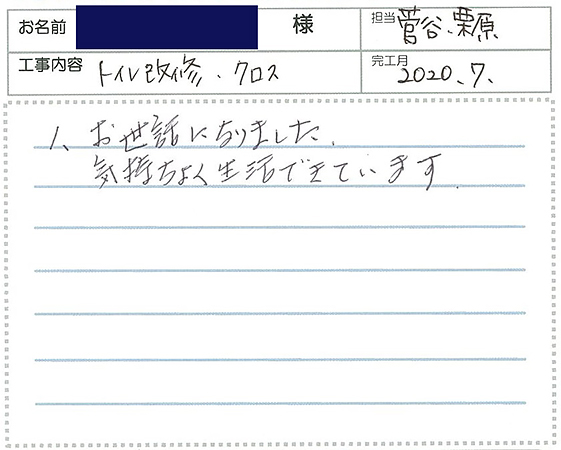 お名前 様 担当 菅谷、栗原
工事内容 トイレ改修・クロス 完工月 2020.7.
1、お世話になりました。
気持ちよく生活できています。